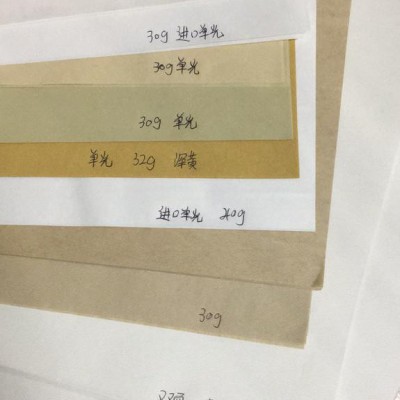 30g 进口单光
30g 单光
30g 单光
单光 32g 深黄
进口单光 40g
30g